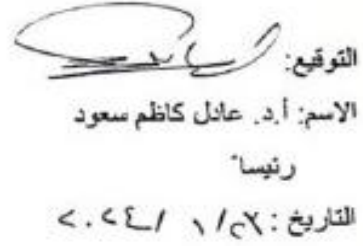 التوقيع:
الاسم: أ.د. عادل كاظم سعود
رئيسا ً
التاريخ: ٢٣/ ١ /٢٠٢٤